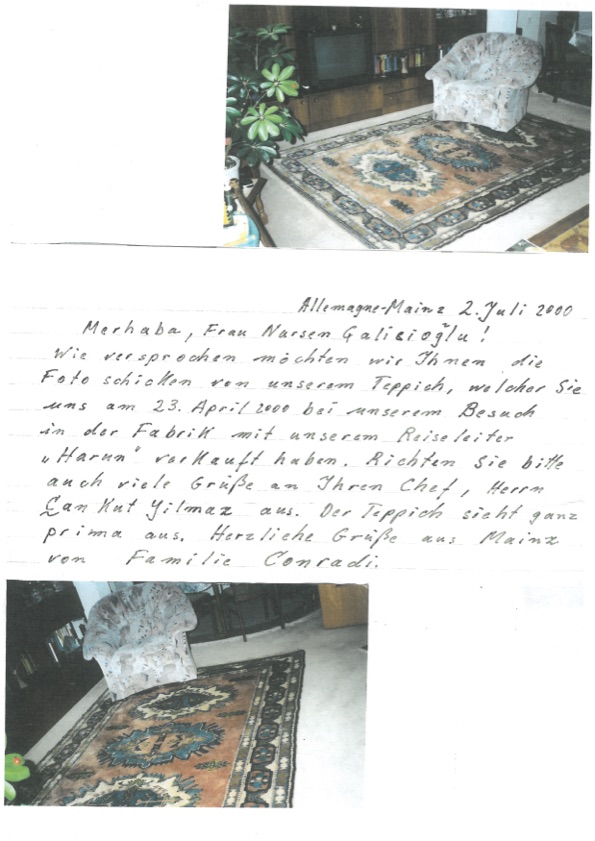 Allemagne-Mainz 2. Juli 2000
Merhaba, Frau Nursen Galicioğlu!
Wie versprochen möchten wir Ihnen die
Foto schicken von unserem Teppich, welcher Sie
uns am 23. April 2000 bei unserem Besuch
in der Fabrik mit unserem Reiseleiter
„Harun" verkauft haben. Richten Sie bitte
auch viele Grüße an Ihren Chef, Herrn
Can Kut Yilmaz aus. Der Teppich sieht ganz
prima aus. Herzliche Grüße aus Mainz
von Familie Conradi.